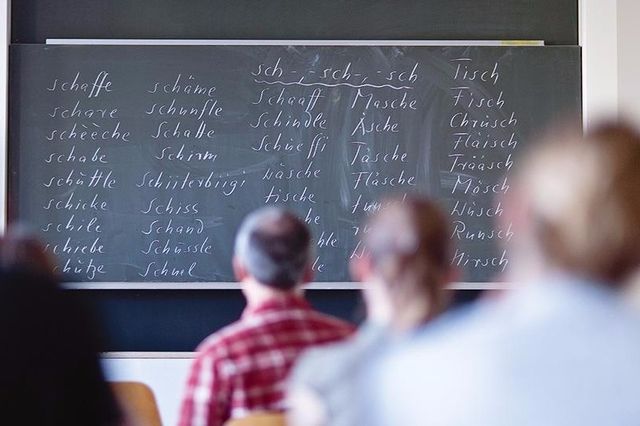 schaffe
schare
schèèche
schabe
schüttle
schicke
schile
schiebe
schütze
schäme
schunfle
schatte
Schirm
Schiss
Schand
Schüssle
Schnel
sch-, -sch-, -sch
Schaaff
Schindle
Schüeffi
wäsche
tische
Masche
Äsche
Tasche
Fläsche
Tisch
Fisch
Chrüsch
Fläisch
Trääsch
Mösch
Wüsch
Runsch
Hirsch